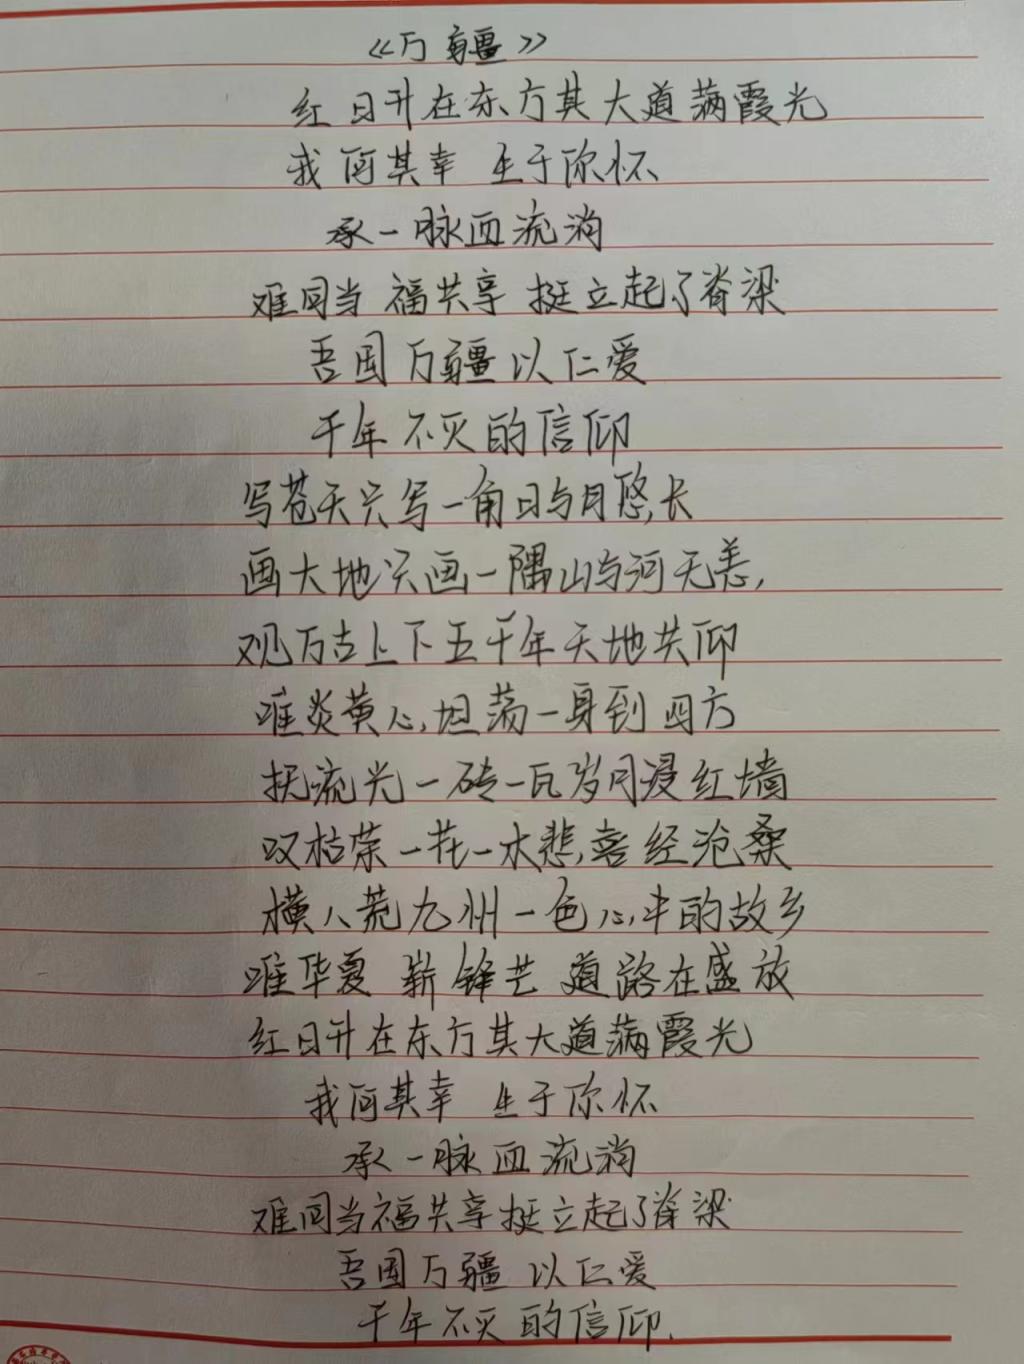 《万疆》
红日升在东方其大道满霞光
我何其幸 生于你怀
承一脉血流淌
难同当 福共享 挺立起了脊梁
吾国万疆以仁爱
千年不灭的信仰
写苍天只写一角日与月悠长
画大地只画一隅山与河无恙,
观万古上下五千年天地共仰
唯炎黄心,坦荡一身到四方
抚流光一砖一瓦岁月浸红墙
叹枯荣一花一木悲喜经沧桑
横八荒九州一色心中的故乡
唯华夏 崭锋芒 道路在盛放
红日升在东方其大道满霞光
我何其幸 生于你怀
承一脉血流淌
难同当福共享挺立起了脊梁
吾国万疆 以仁爱
千年不灭的信仰.